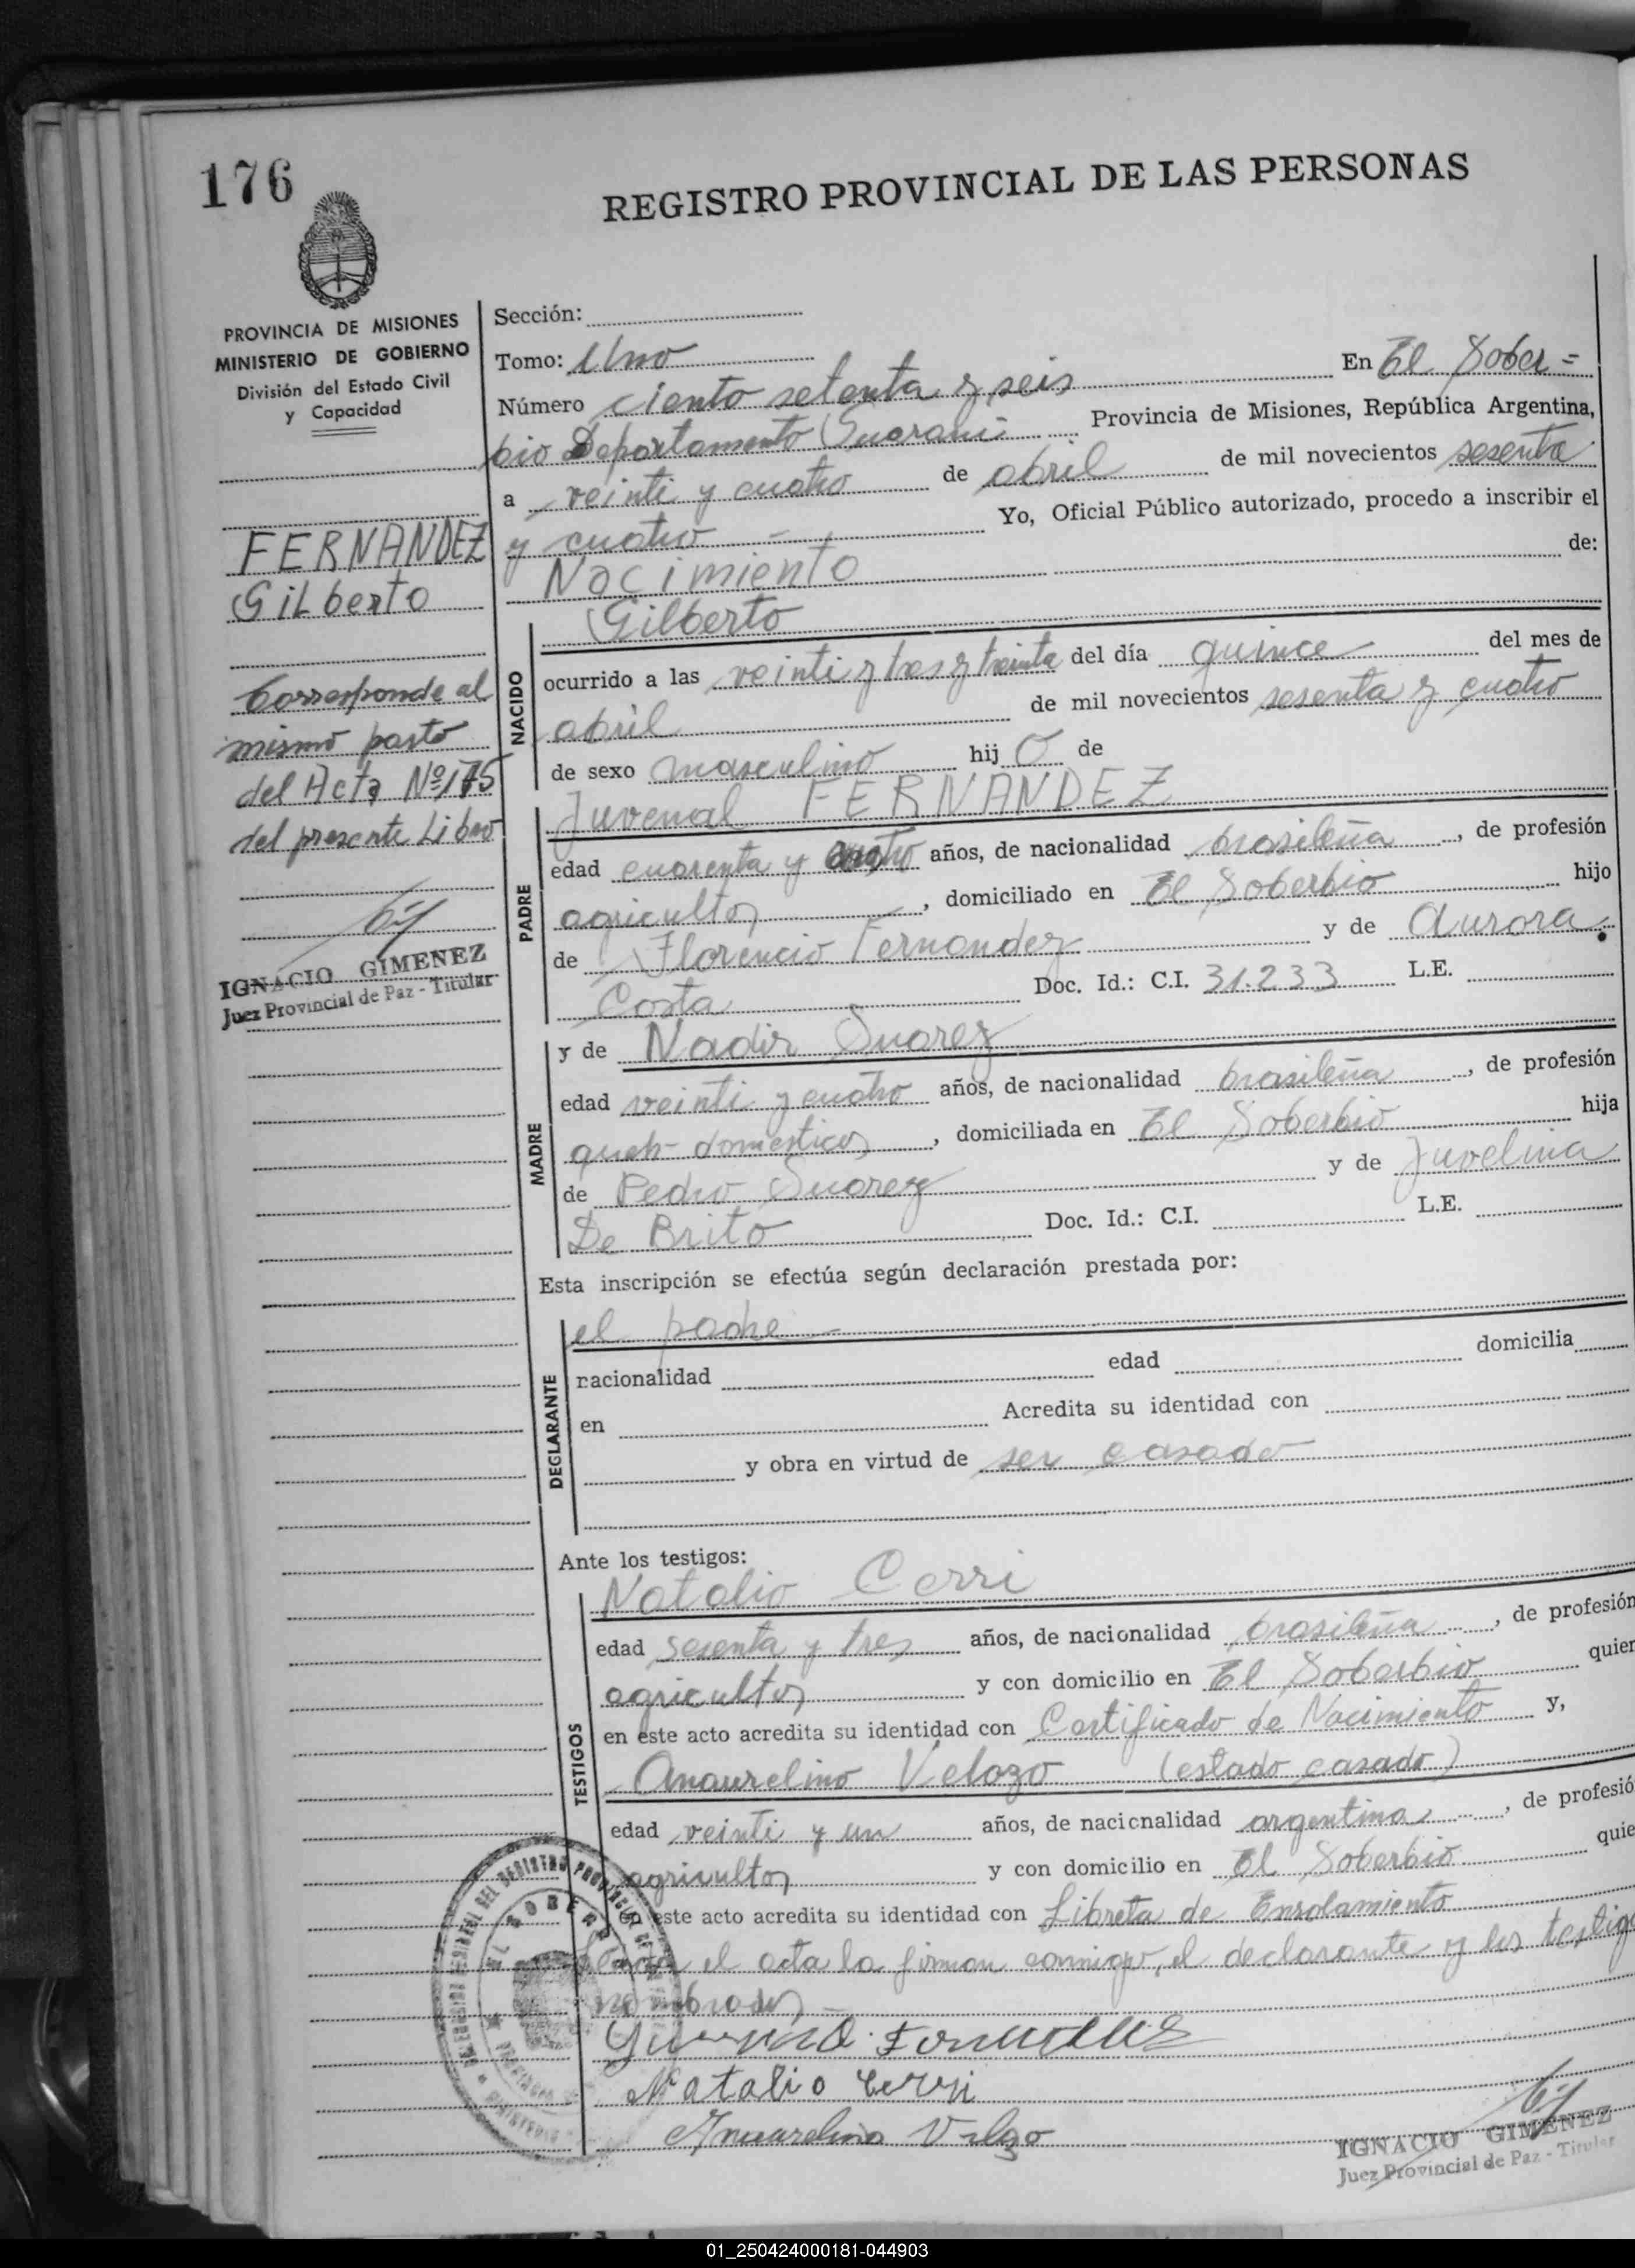 176
REGISTRO PROVINCIAL DE LAS PERSONAS
PROVINCIA DE MISIONES
MINISTERIO DE GOBIERNO
División del Estado Civil
y Capacidad
FERNANDEZ
Gilberto
Corresponde al
mismo parto
del Acta Nº 175
del presente Libro
IGNACIO GIMENEZ
Juez Provincial de Paz - Titular
Sección:
Tomo: Uno
Número ciento setenta y seis En El Sober=
bio Departamento Guarani Provincia de Misiones, República Argentina,
a veinti y cuatro de abril de mil novecientos sesenta
y cuatro - Yo, Oficial Público autorizado, procedo a inscribir el
Nacimiento de:
NACIDO
Gilberto
ocurrido a las veinti y tres y treinta del día quince del mes de
abril de mil novecientos sesenta y cuatro
de sexo masculino hijo de
PADRE
Juvenal FERNANDEZ
edad cuarenta y cuatro años, de nacionalidad brasileña, de profesión
agricultor, domiciliado en El Soberbio hijo
de Florencio Fernandez y de Aurora
Costa Doc. Id.: C.I. 31.233 L.E.
MADRE
y de Nadir Suarez
edad veinti y cuatro años, de nacionalidad brasileña, de profesión
queh- domesticos, domiciliada en El Soberbio hija
de Pedro Suarez y de Juvelina
De Brito Doc. Id.: C.I. L.E.
Esta inscripción se efectúa según declaración prestada por:
DEGLARANTE
el padre
nacionalidad edad domicilia
en Acredita su identidad con
y obra en virtud de ser casado
Ante los testigos:
TESTIGOS
Natalio Cerri
edad sesenta y tres años, de nacionalidad brasileña, de profesión
agricultor y con domicilio en El Soberbio quien
en este acto acredita su identidad con Certificado de Nacimiento y,
Anaurelino Velozo (estado casado)
edad veinti y un años, de nacionalidad argentina, de profesió
agricultor y con domicilio en El Soberbio quie
en este acto acredita su identidad con Libreta de Enrolamiento
el acta la firman conmigo, el declarante y los testigo
nombrados -
Natalio Cerri
Anaurelino Velozo
IGNACIO GIMENEZ
Juez Provincial de Paz - Titular
01_250424000181-044903